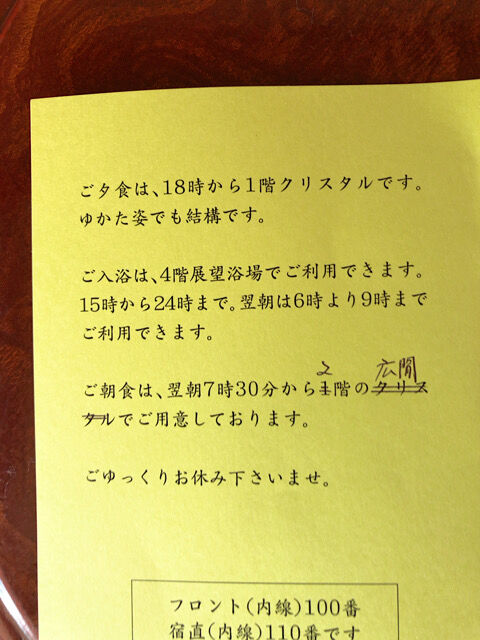 ご夕食は、18時から1階クリスタルです。
ゆかた姿でも結構です。
ご入浴は、4階展望浴場でご利用できます。
15時から24時まで。翌朝は6時より9時まで
ご利用できます。
2 広間
ご朝食は、翌朝7時30分から1階のクリス
タルでご用意しております。
ごゆっくりお休み下さいませ。
フロント(内線)100番
宿直(内線)110番です